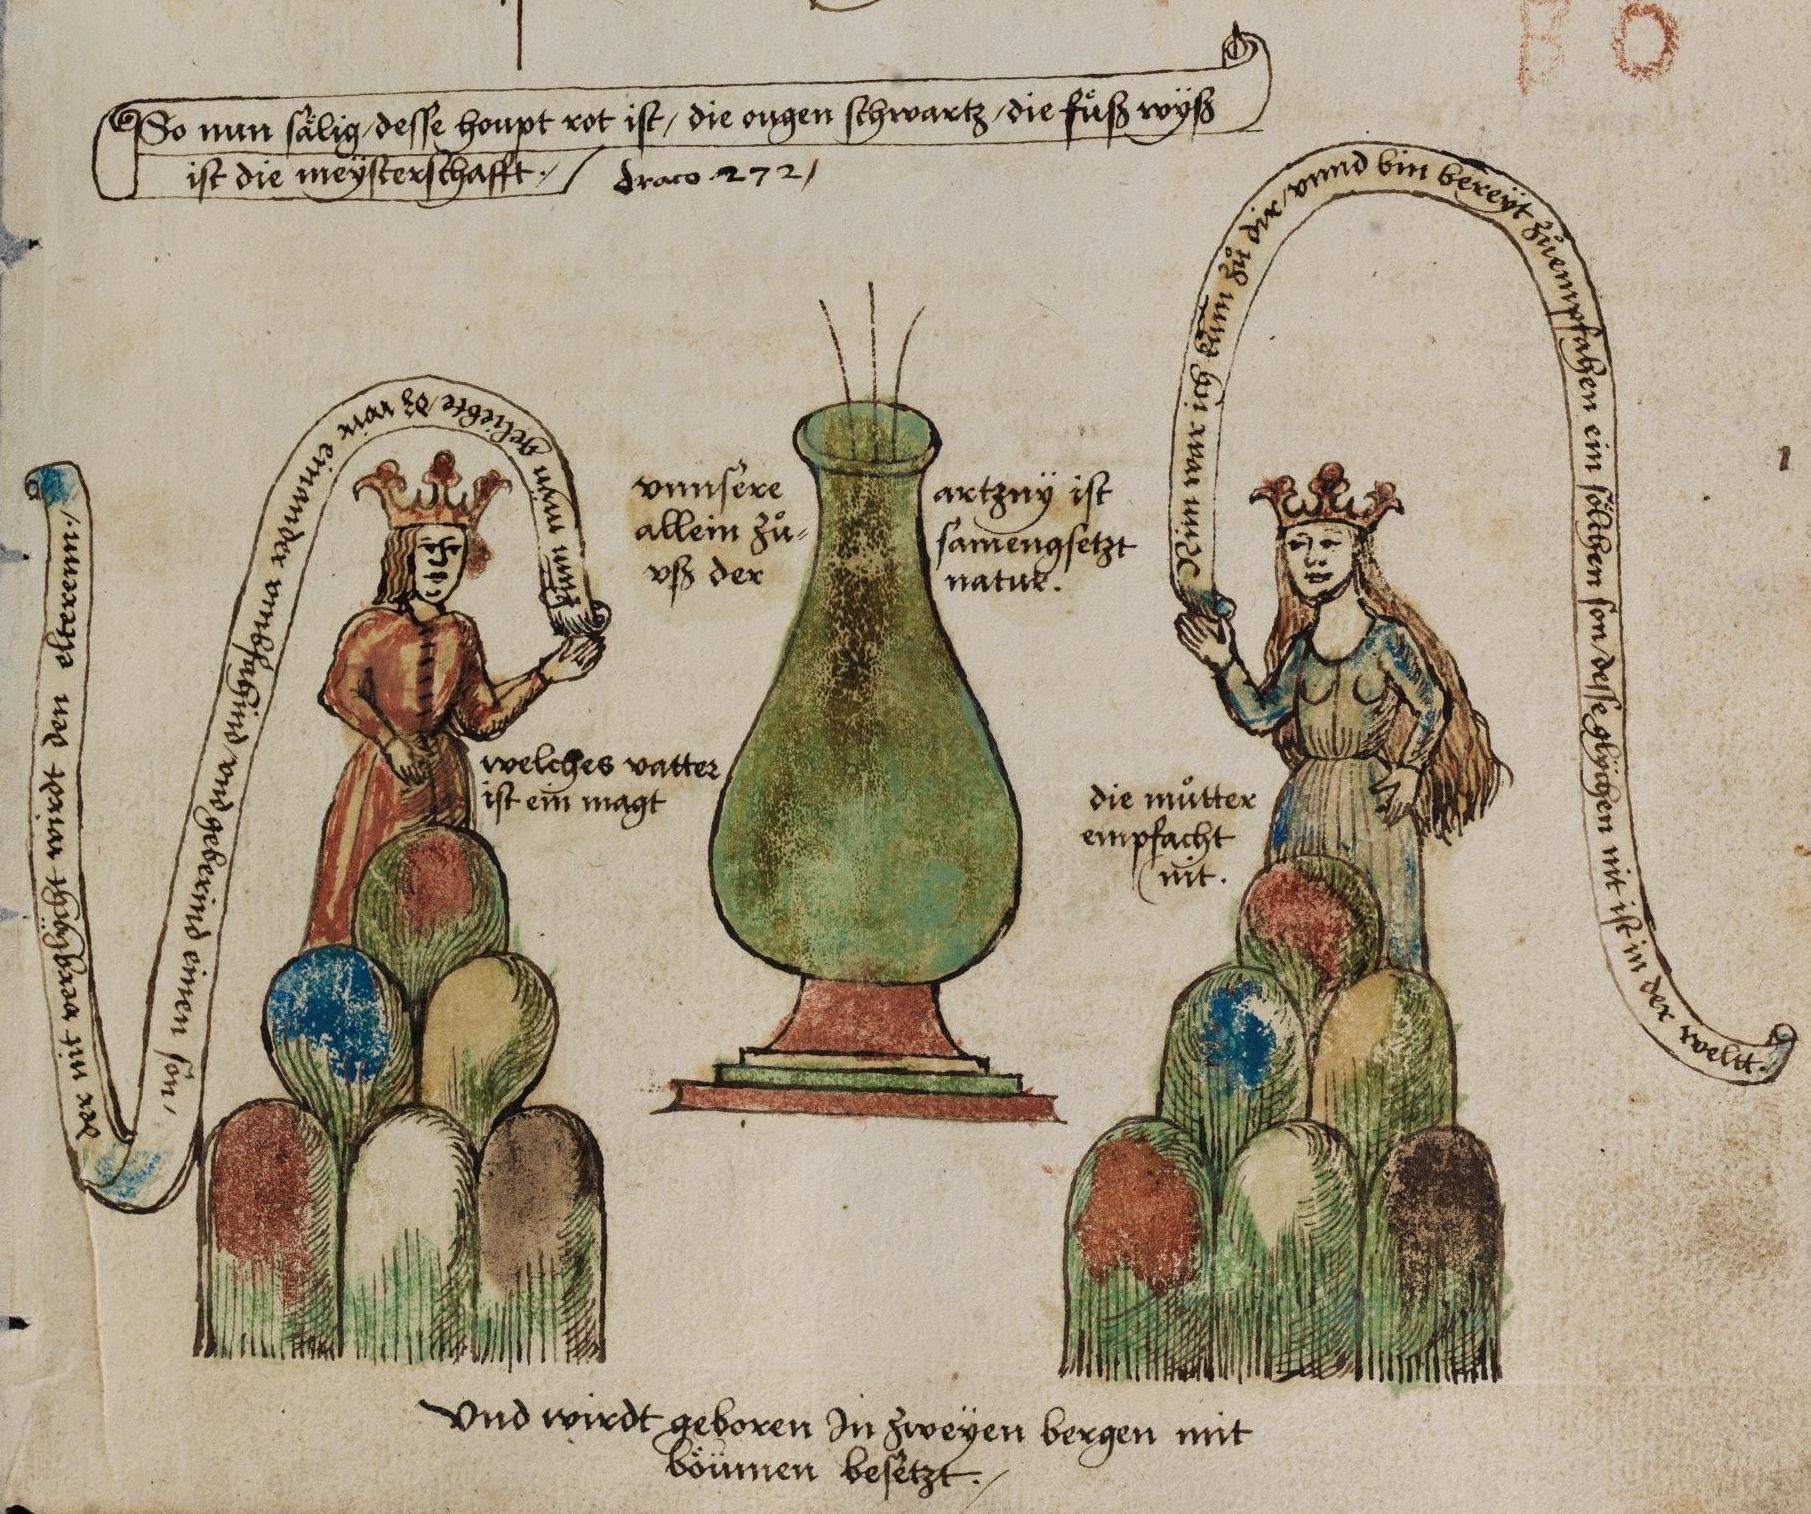 So nun sälig / desse houpt rot ist / die ougen schwartz / die fůß wyß
ist die meysterschafft. / draco 272 /
kum myn geliebte / dz wir einander umbfahind / und geberind einen son /
der nit verglycht wirdt den elterenn. /
Nim war ich kum zů dir / unnd bin bereyt zů empfahen ein sölchen son / desse glychen nit ist in der weltt.
unnsere artzny ist
allein zů- samengsetzt
uß der natur.
welches vatter
ist ein magt
die můtter
empfacht
nit.
Und wirdt geboren In zweyen bergen mit
böumen besetzt. /